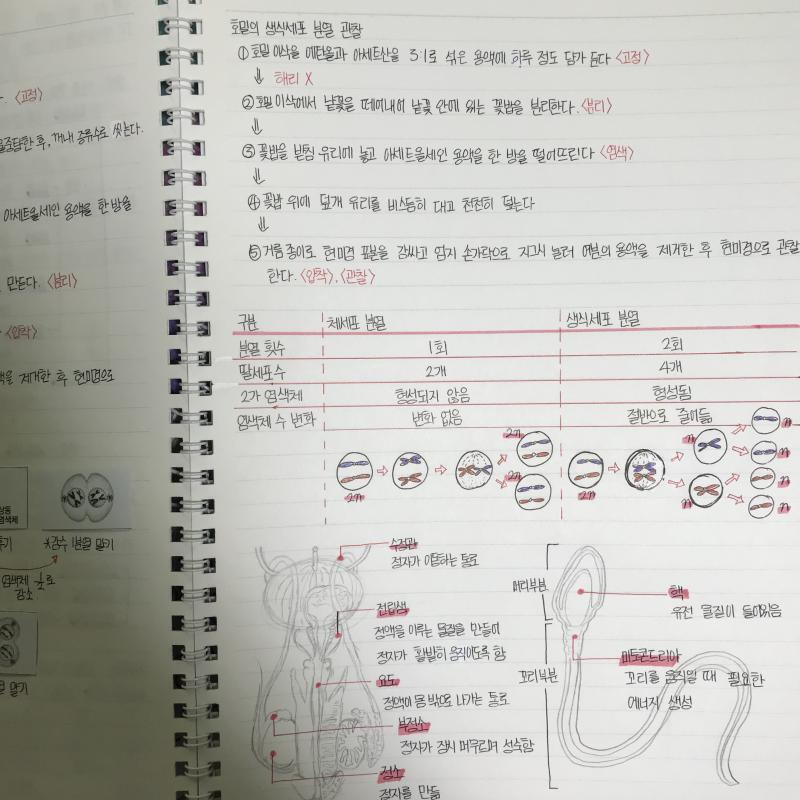 〈고정〉
을 중탕한 후, 꺼내 증류수로 씻는다.
아세트올세인 용액을 한 방울
만든다. 〈분리〉
〈압착〉
액을 제거한 후 현미경으로
상동
염색체
후기
감수 1분열 말기
염색체 1/2로
감소
열 말기
호밀의 생식세포 분열 관찰
① 호밀 이삭을 에탄올과 아세트산을 3:1로 섞은 용액에 하루 정도 담가 둔다 〈고정〉
⇓ 해리 X
② 호밀 이삭에서 낱꽃을 떼어내어 낱꽃 안에 있는 꽃밥을 분리한다. 〈분리〉
⇓
③ 꽃밥을 받침 유리에 놓고 아세트올세인 용액을 한 방울 떨어뜨린다 〈염색〉
⇓
④ 꽃밥 위에 덮개 유리를 비스듬히 대고 천천히 덮는다
⇓
⑤ 거름종이로 현미경 표본을 감싸고 엄지 손가락으로 지그시 눌러 여분의 용액을 제거한 후 현미경으로 관찰
한다. 〈압착〉, 〈관찰〉
구분 체세포 분열 생식세포 분열
분열 횟수 1회 2회
딸세포수 2개 4개
2가 염색체 형성되지 않음 형성됨
염색체 수 변화 변화 없음 절반으로 줄어듦
2n 2n 2n
2n n n n n n n
수정관
정자가 이동하는 통로
전립샘
정액을 이루는 물질을 만들어
정자가 활발히 움직이도록 함
요도
정액이 몸 밖으로 나가는 통로
부정소
정자가 잠시 머무르며 성숙함
정소
정자를 만듦
머리부분
핵
유전 물질이 들어있음
꼬리부분
미토콘드리아
꼬리를 움직일 때 필요한
에너지 생성